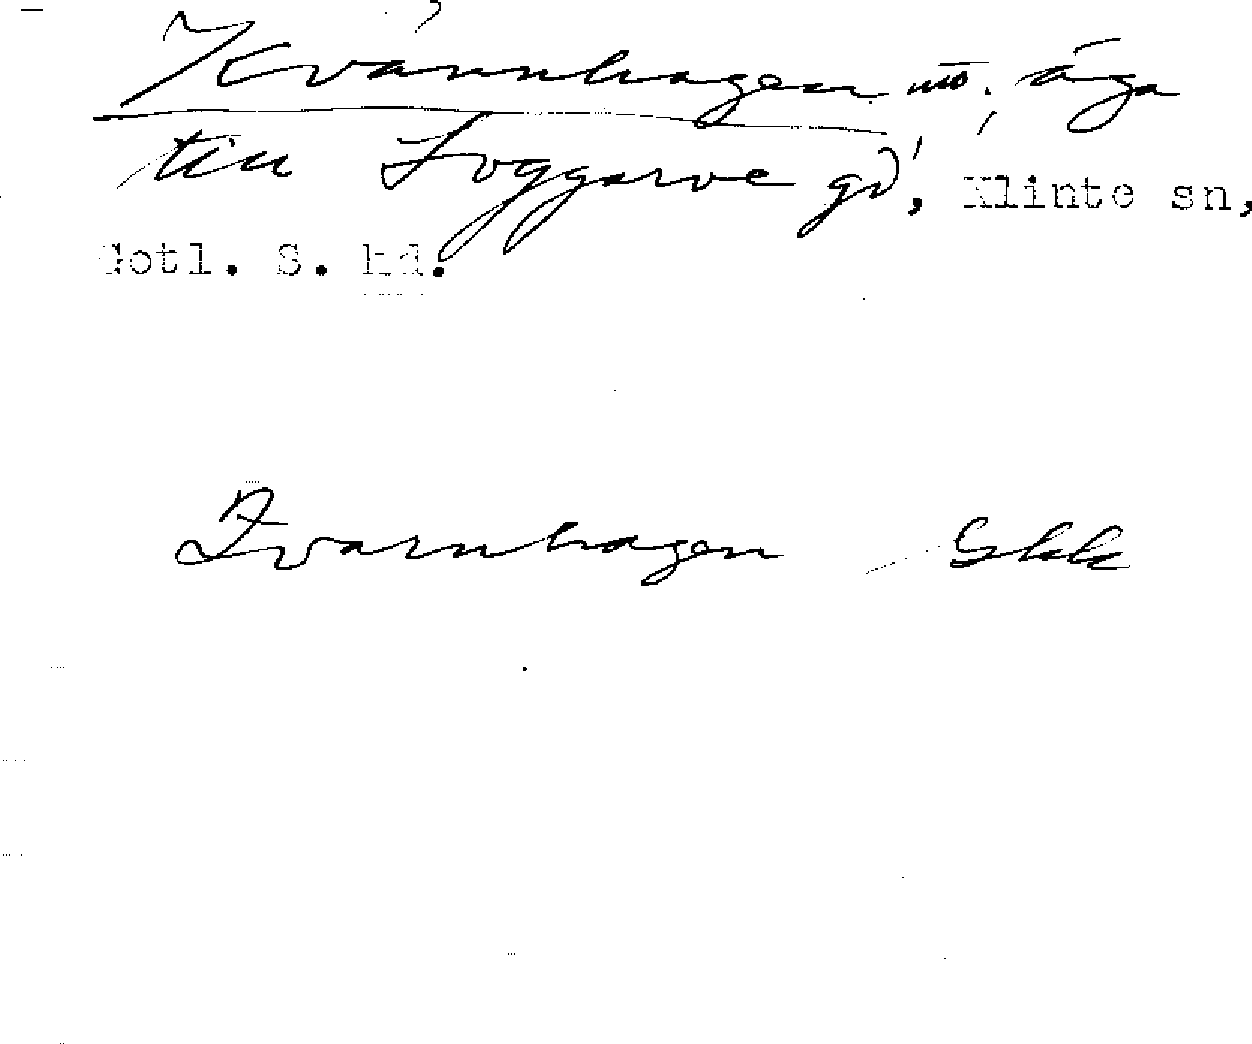 Kvännhagen mo, äga
till Loggarve gd, Klinte sn,
Gotl. S. hd.
Qvarnhagen Gkk